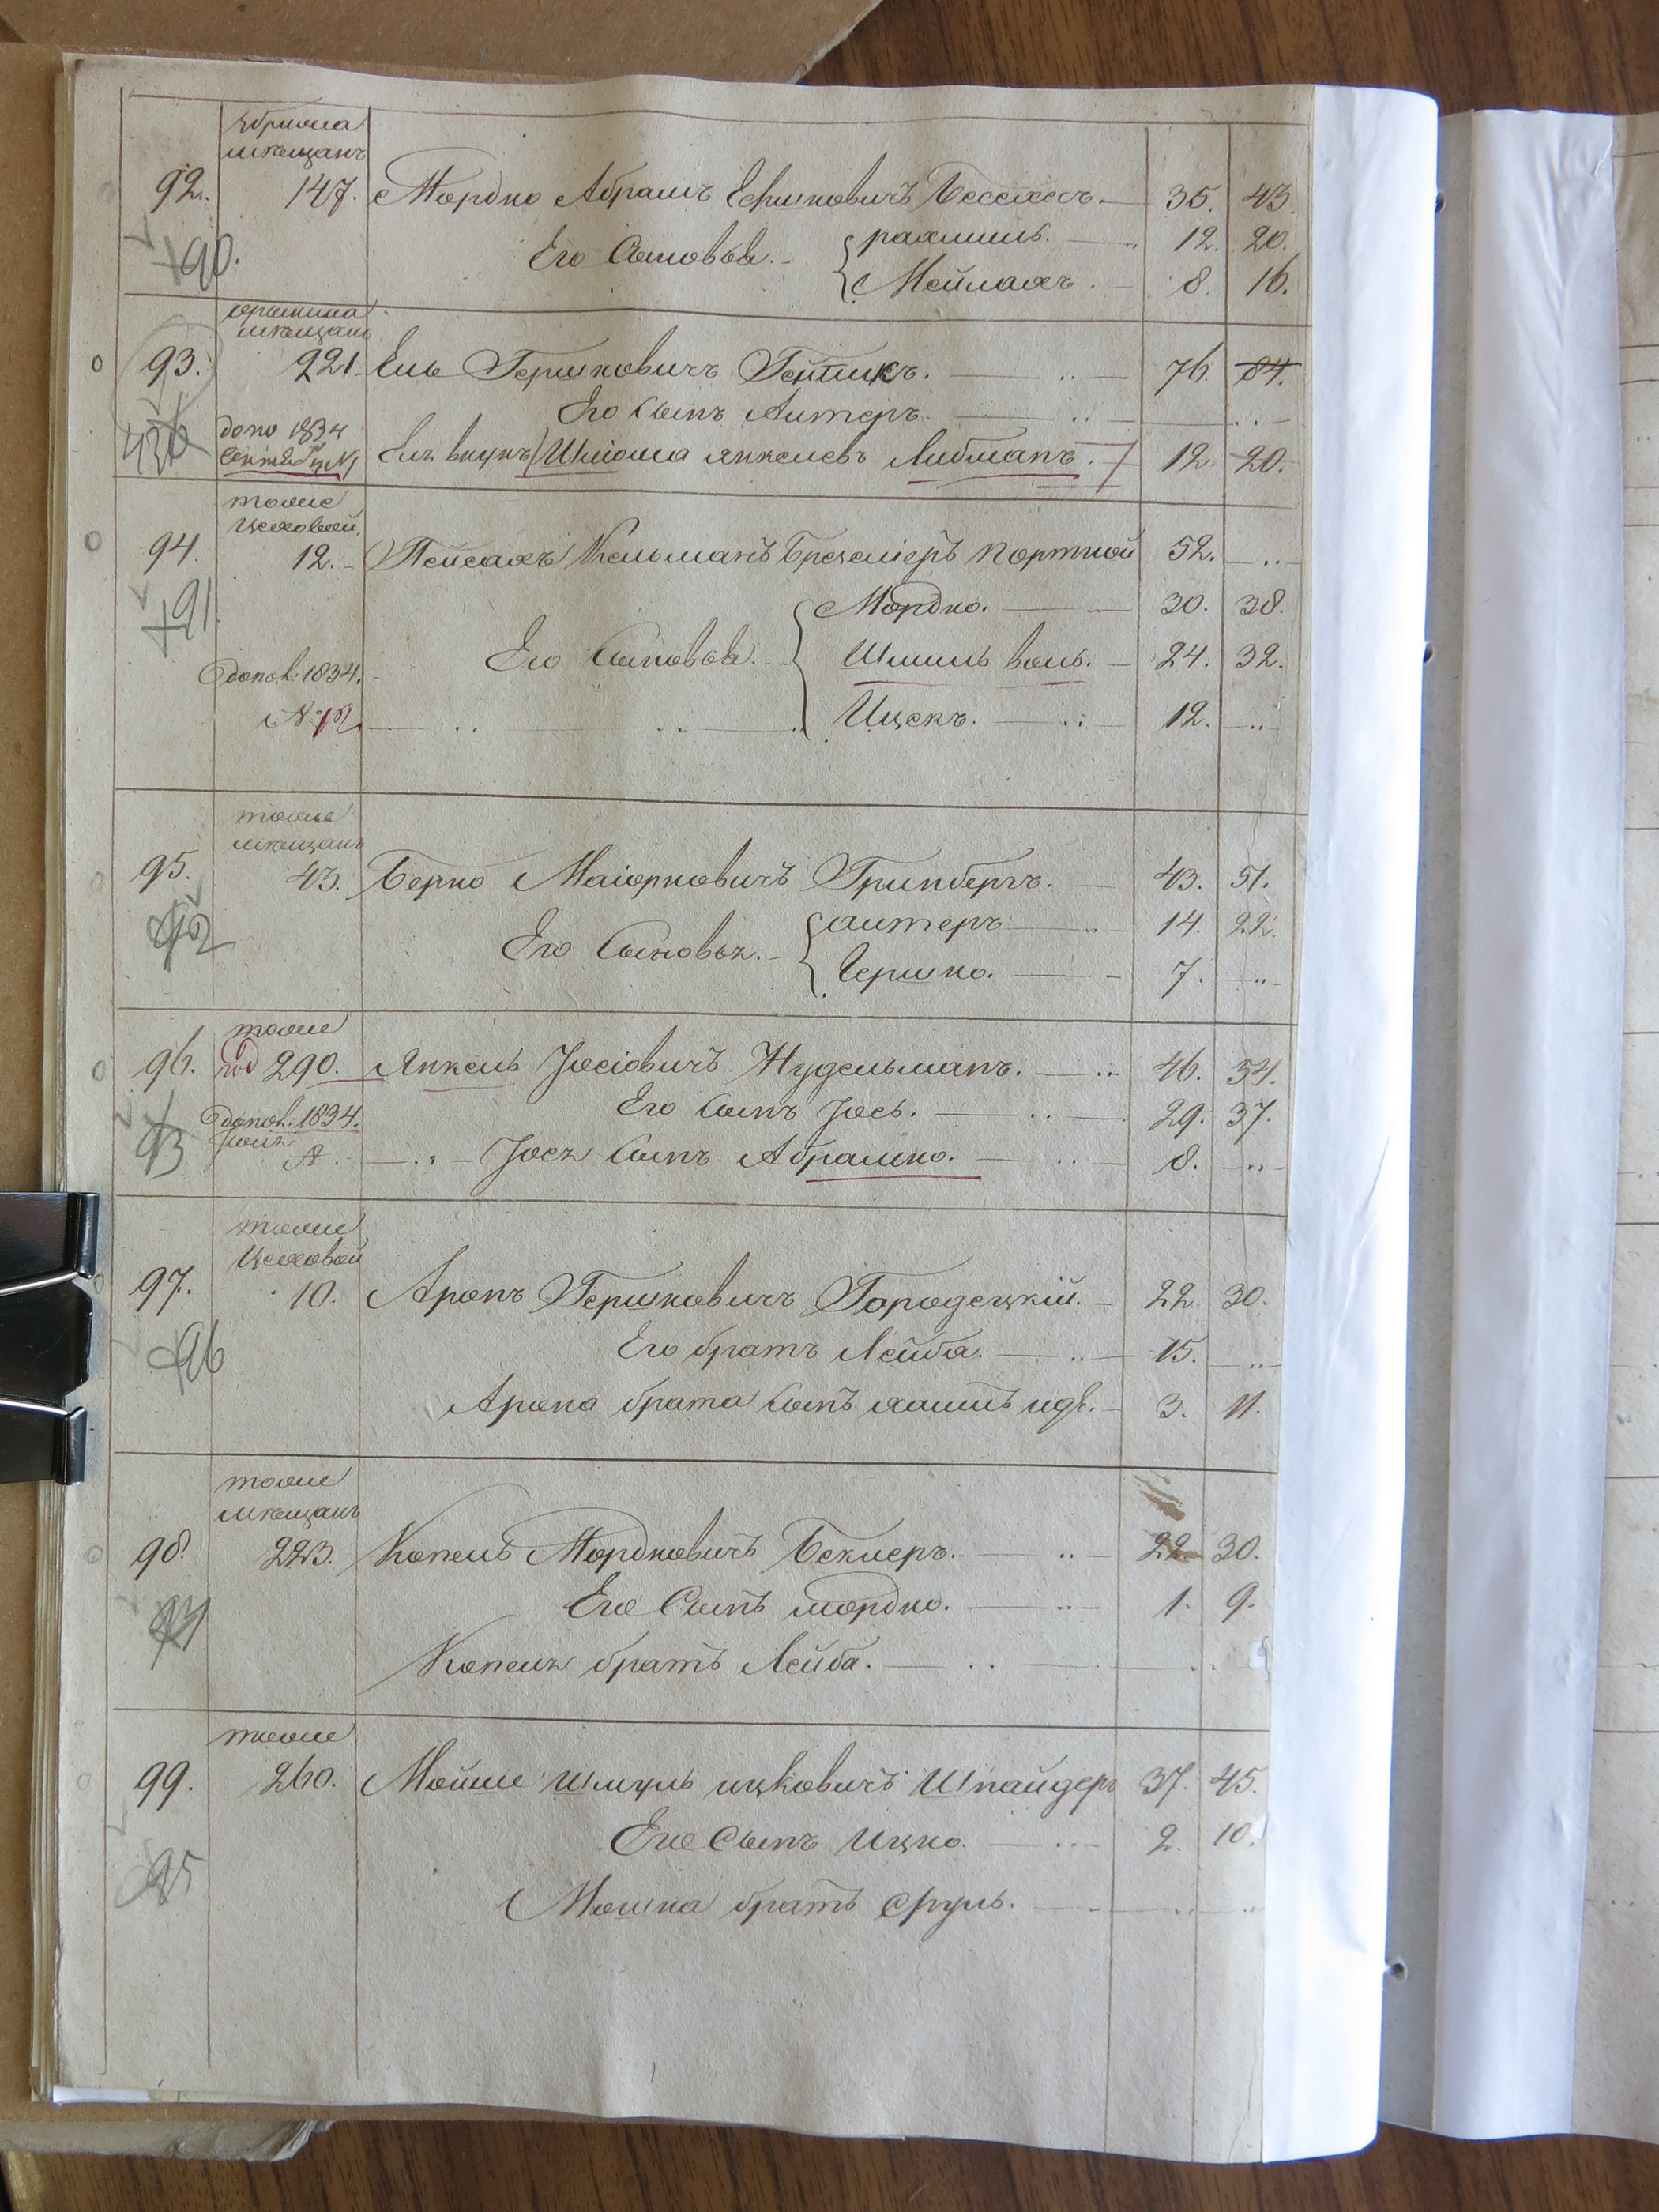 мѣщанъ
92. 147. Мордко Абрамъ Ершковичъ 35. 43.
Его Сыновья. Рахмиль. 12. 20.
90. Меймахъ. 8. 16.
мѣщанъ
93. 221. Ель Гершковичъ 76. 84.
Его Сынъ Алтеръ.
допо 1834
Ель внукъ Шліома Янкелевъ Либманъ. 12. 20.
тоже
Цеховой.
94. 12. Пейсахъ Кельманъ портной 52.
91. Мордко. 30. 38.
Его Сыновья. Шмиль Воль. 24. 32.
допол: 1834.
№ 12 Ицекъ. 12.
тоже
мѣщанъ
95. 43. Берко Маіорковичъ Гринбергъ. 43. 51.
92 Его Сыновья. Алтеръ 14. 22.
Гершко. 7.
тоже
96. 290. Янкель Іосіовичъ Нудельманъ. 46. 54.
допол: 1834. Его Сынъ Іось. 29. 37.
93 Іося Сынъ Абрамко. 8.
тоже
Цеховой
97. 10. Аронъ Гершковичъ Городецкій. 22. 30.
96 Его братъ Лейба. 15.
Арона брата Сынъ Хаимъ 3. 11.
тоже
мѣщанъ
98. 223. Копель Мордковичъ Беклеръ. 22 30.
Его Сынъ Мордко. 1. 9.
Копеля братъ Лейба.
тоже
99. 260. Мойше Шмуль Ицковичъ Шнайдеръ 37. 45.
Его Сынъ Ицко. 2. 10.
95
Мошка братъ Сруль.